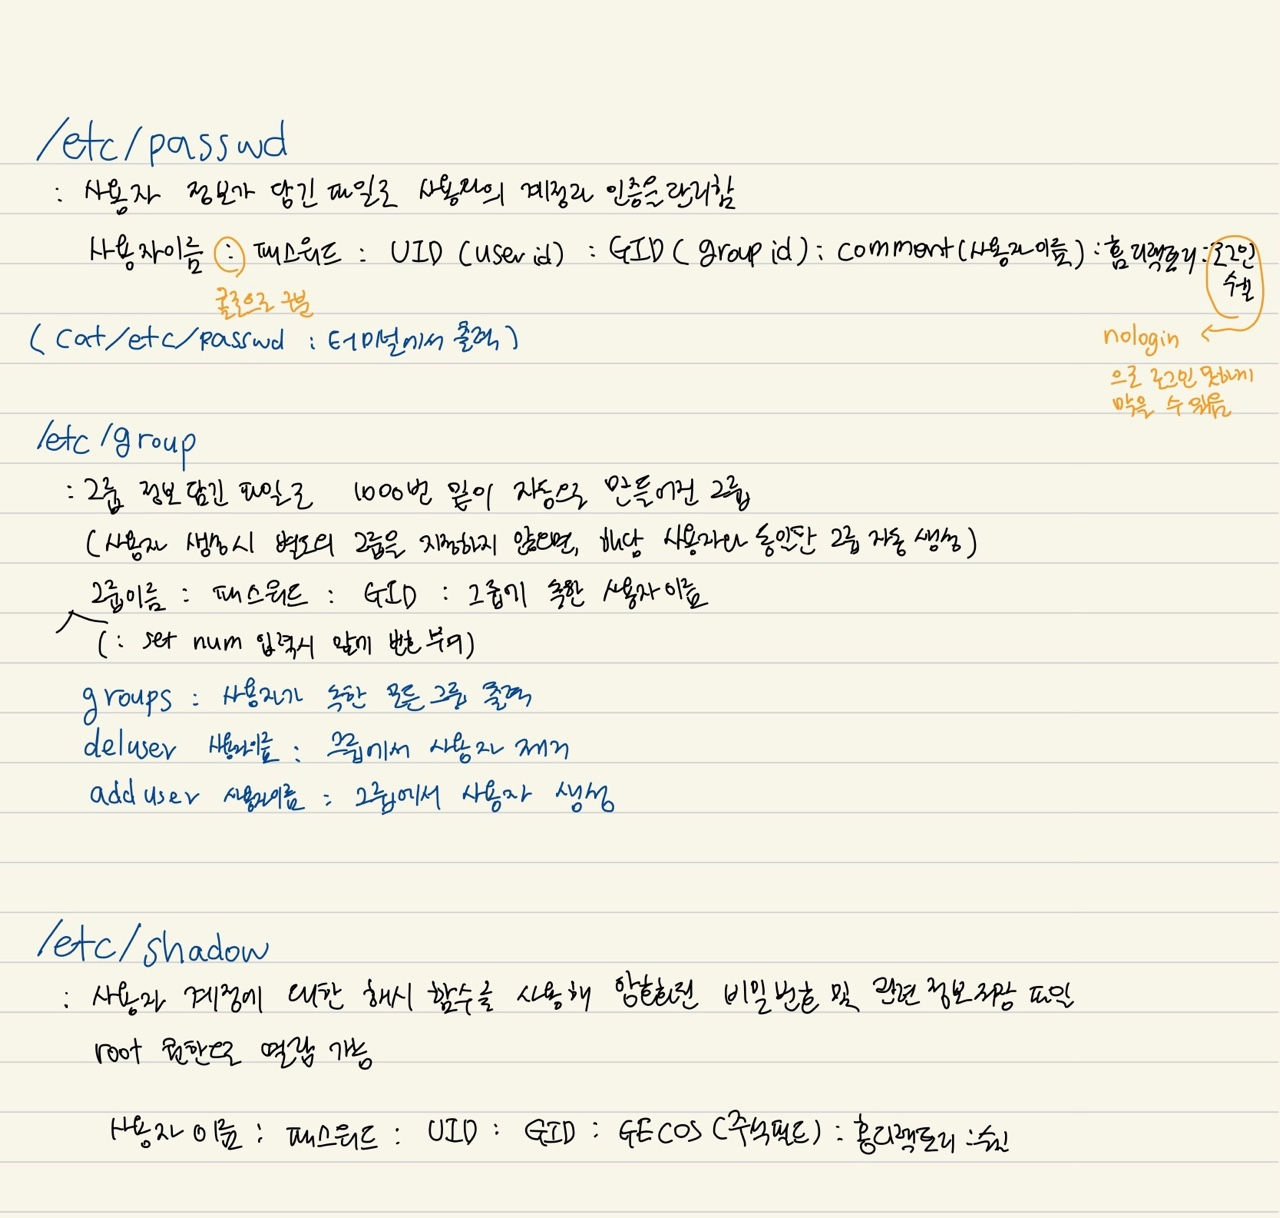 /etc/passwd
: 사용자 정보가 담긴 파일로 사용자의 계정과 인증을 관리함
사용자이름 : 패스워드 : UID (user id) : GID ( group id ) : comment (사용자이름) : 홈디렉토리 : 로그인
쉘
콜론으로 구분
( cat /etc/passwd : 터미널에서 출력 )
nologin
으로 로그인 못하게
막을 수 있음
/etc/group
: 그룹 정보 담긴 파일로 1000번 밑이 자동으로 만들어진 그룹
(사용자 생성시 별도의 그룹을 지정하지 않으면, 해당 사용자와 동일한 그룹 자동 생성)
그룹이름 : 패스워드 : GID : 그룹에 속한 사용자이름
( : set num 입력시 앞에 번호 부여)
groups : 사용자가 속한 모든 그룹 출력
deluser 사용자이름 : 그룹에서 사용자 제거
adduser 사용자이름 : 그룹에서 사용자 생성
/etc/shadow
: 사용자 계정에 대한 해시 함수를 사용해 암호화된 비밀번호 및 관련 정보저장 파일
root 권한으로 열람 가능
사용자 이름 : 패스워드 : UID : GID : GECOS (주석필드) : 홈디렉토리 :